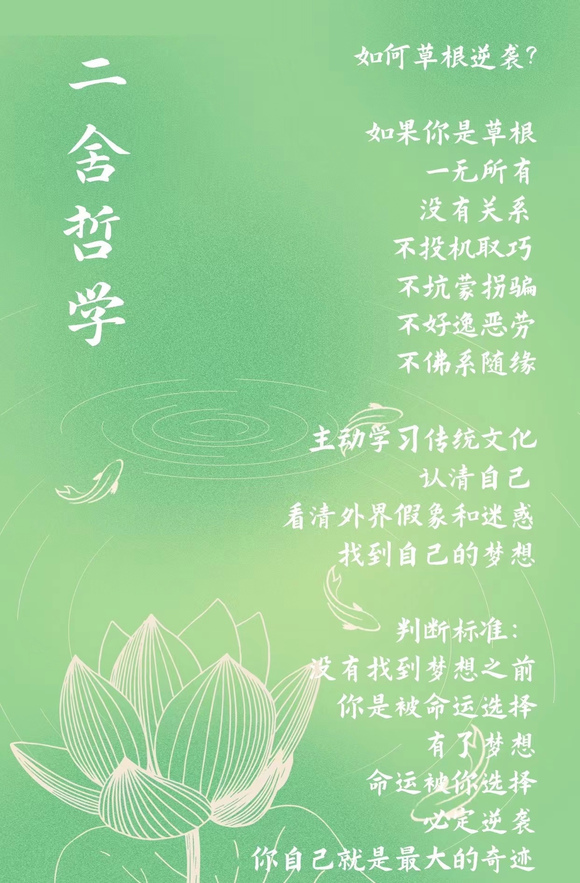 二舍哲学
如何草根逆袭？
如果你是草根
一无所有
没有关系
不投机取巧
不坑蒙拐骗
不好逸恶劳
不佛系随缘
主动学习传统文化
认清自己
看清外界假象和迷惑
找到自己的梦想
判断标准：
没有找到梦想之前
你是被命运选择
有了梦想
命运被你选择
必定逆袭
你自己就是最大的奇迹